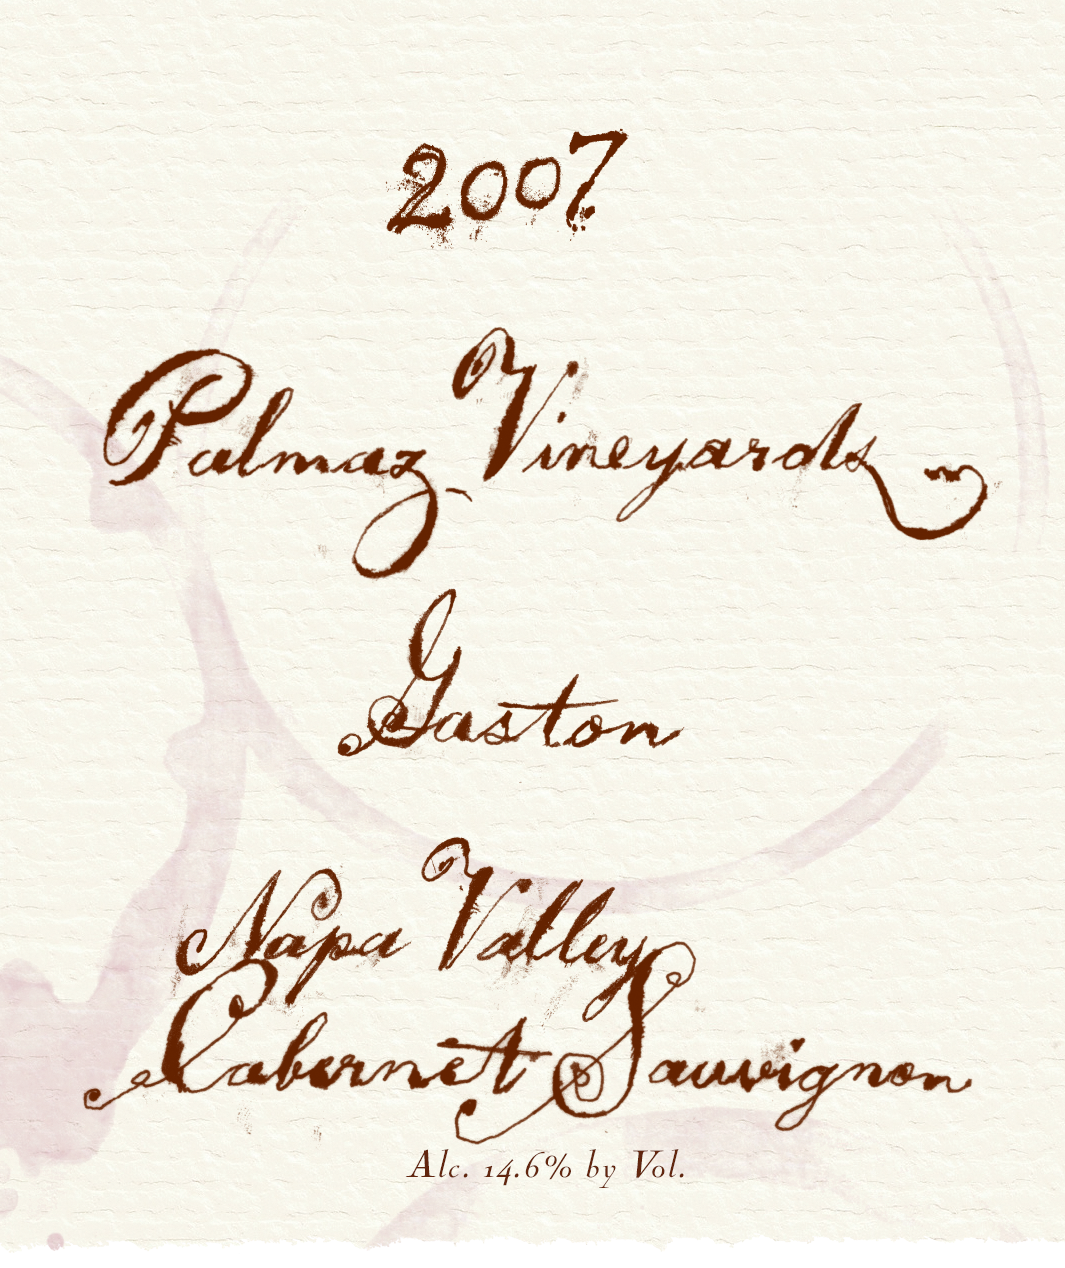 2007
Palmaz Vineyards
Gaston
Napa Valley
Cabernet Sauvignon
Alc. 14.6% by Vol.